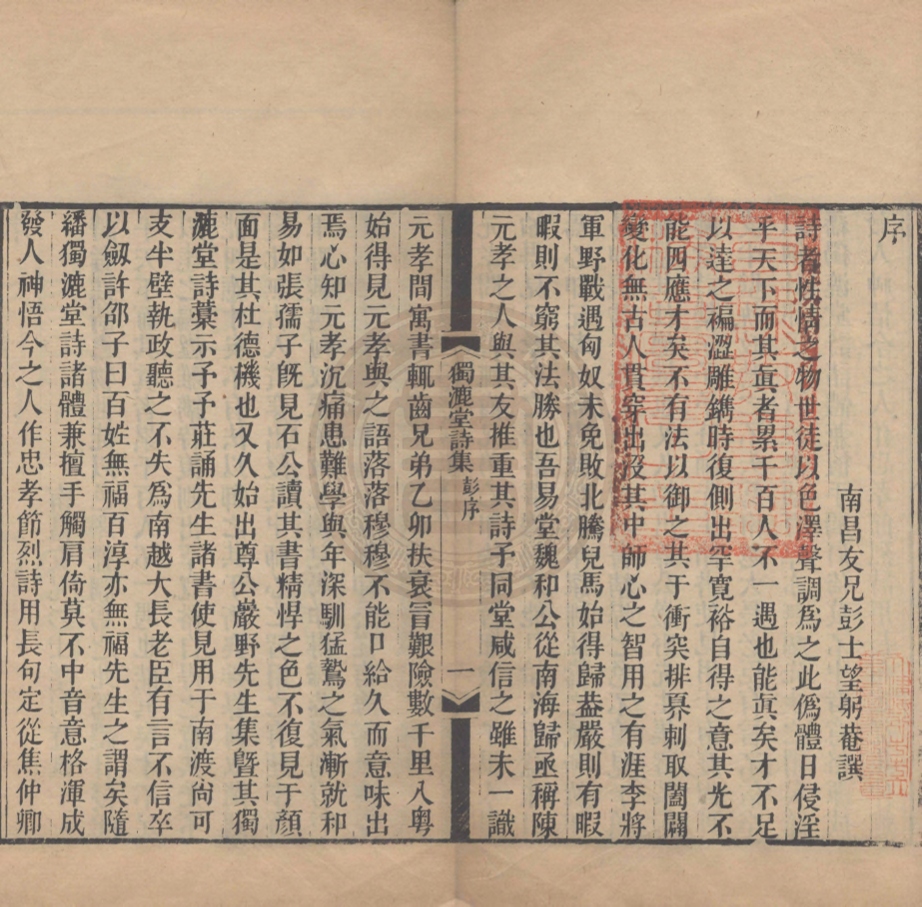 序
南昌友兄彭士望躬菴譔
詩者性情之物世徒以色澤聲調爲之此僞體日侵淫
乎天下而其眞者累千百人不一遇也能眞矣才不足
以達之褊澀雕鐫時復側出罕寬裕自得之意其光不
能四應才矣不有法以御之其于衝突排奡刺取闔闢
變化無古人貫穿出没其中師心之智用之有涯李將
軍野戰遇匈奴未免敗北騰兒馬始得歸葢嚴則有暇
暇則不窮其法勝也吾易堂魏和公從南海歸亟稱陳
元孝之人與其友推重其詩予同堂咸信之雖未一識
獨漉堂詩集 彭序 一
元孝間寓書輒齒兄弟乙卯扶衰冒艱險數千里入粤
始得見元孝與之語落落穆穆不能口給久而意味出
焉心知元孝沉痛患難學與年深馴猛鷙之氣漸就和
易如張孺子旣見石公讀其書精悍之色不復見于顏
面是其杜德機也又久始出尊公巖野先生集曁其獨
漉堂詩藁示予予莊誦先生諸書使見用于南渡尚可
支半壁執政聽之不失爲南越大長老臣有言不信卒
以劒許邵子曰百姓無福百淳亦無福先生之謂矣隨
繙獨漉堂詩諸體兼擅手觸肩倚莫不中音意格渾成
發人神悟今之人作忠孝節烈詩用長句定從焦仲卿